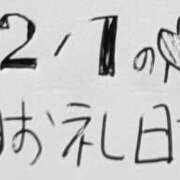 2/1の
お礼日